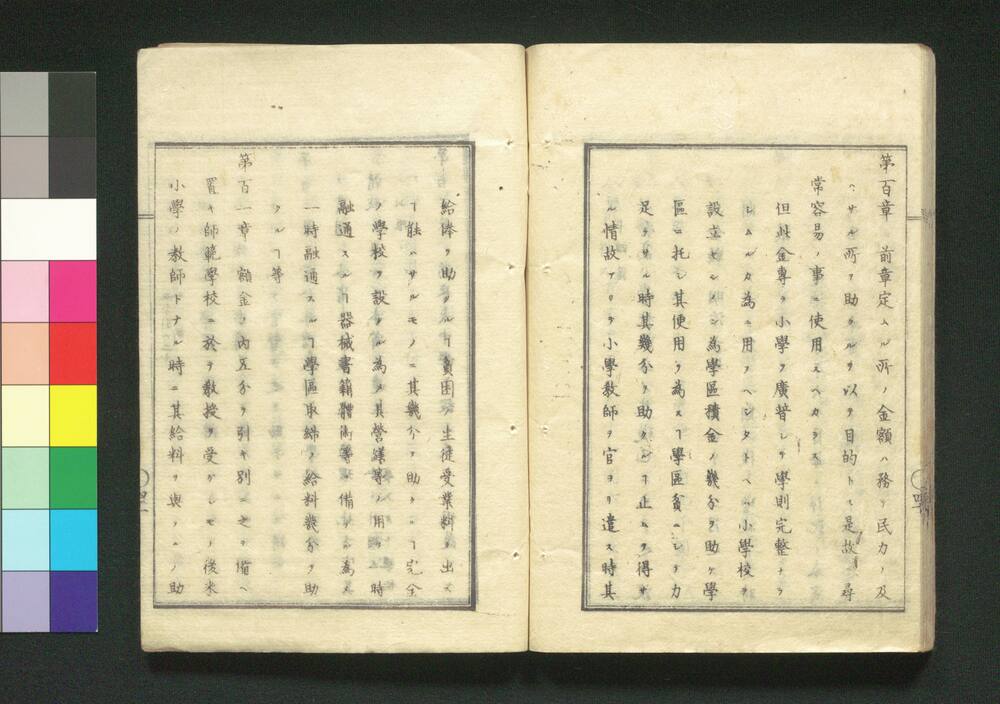 第百章 前章定ムル所ノ金額ハ務テ民力ノ及
ハサル所ヲ助クルヲ以テ目的トス是故ニ尋
常容易ノ事ニ使用スヘカラス
但此金専ラ小學ヲ廣普シテ學則完整ナラ
シムルカ為ニ用フヘシタトヘハ小學校ヲ
設立センメン為學區積金ノ幾分ヲ助ケ學
區ニ托シ其便用ヲ為スヿ學區貧ニシテ力
足ラサル時其幾分ヲ助ケ止ムヲ得サ
ル情故アリテ小學教師ヲ官ヨリ遣ス時其
給俸ヲ助クルヿ貧困ノ生徒受業料ヲ出ス
ヿ能ハサルモノニ其幾分ヲ助クルヿ完全
ノ學校ヲ設クル為メ其營繕等ノ用ヲ一時
融通スルヿ器械書籍體術等ノ備ヲ為ス
一時融通スルヿ學區取締ノ給料幾分ヲ助
クルヿ等
第百一章 額金ノ内五分ヲ引キ別ニ之ヲ備ヘ
置キ師範學校ニ於テ教授ヲ受ケシモノ後来
小學ノ教師トナル時ニ其給料ヲ與フルノ助